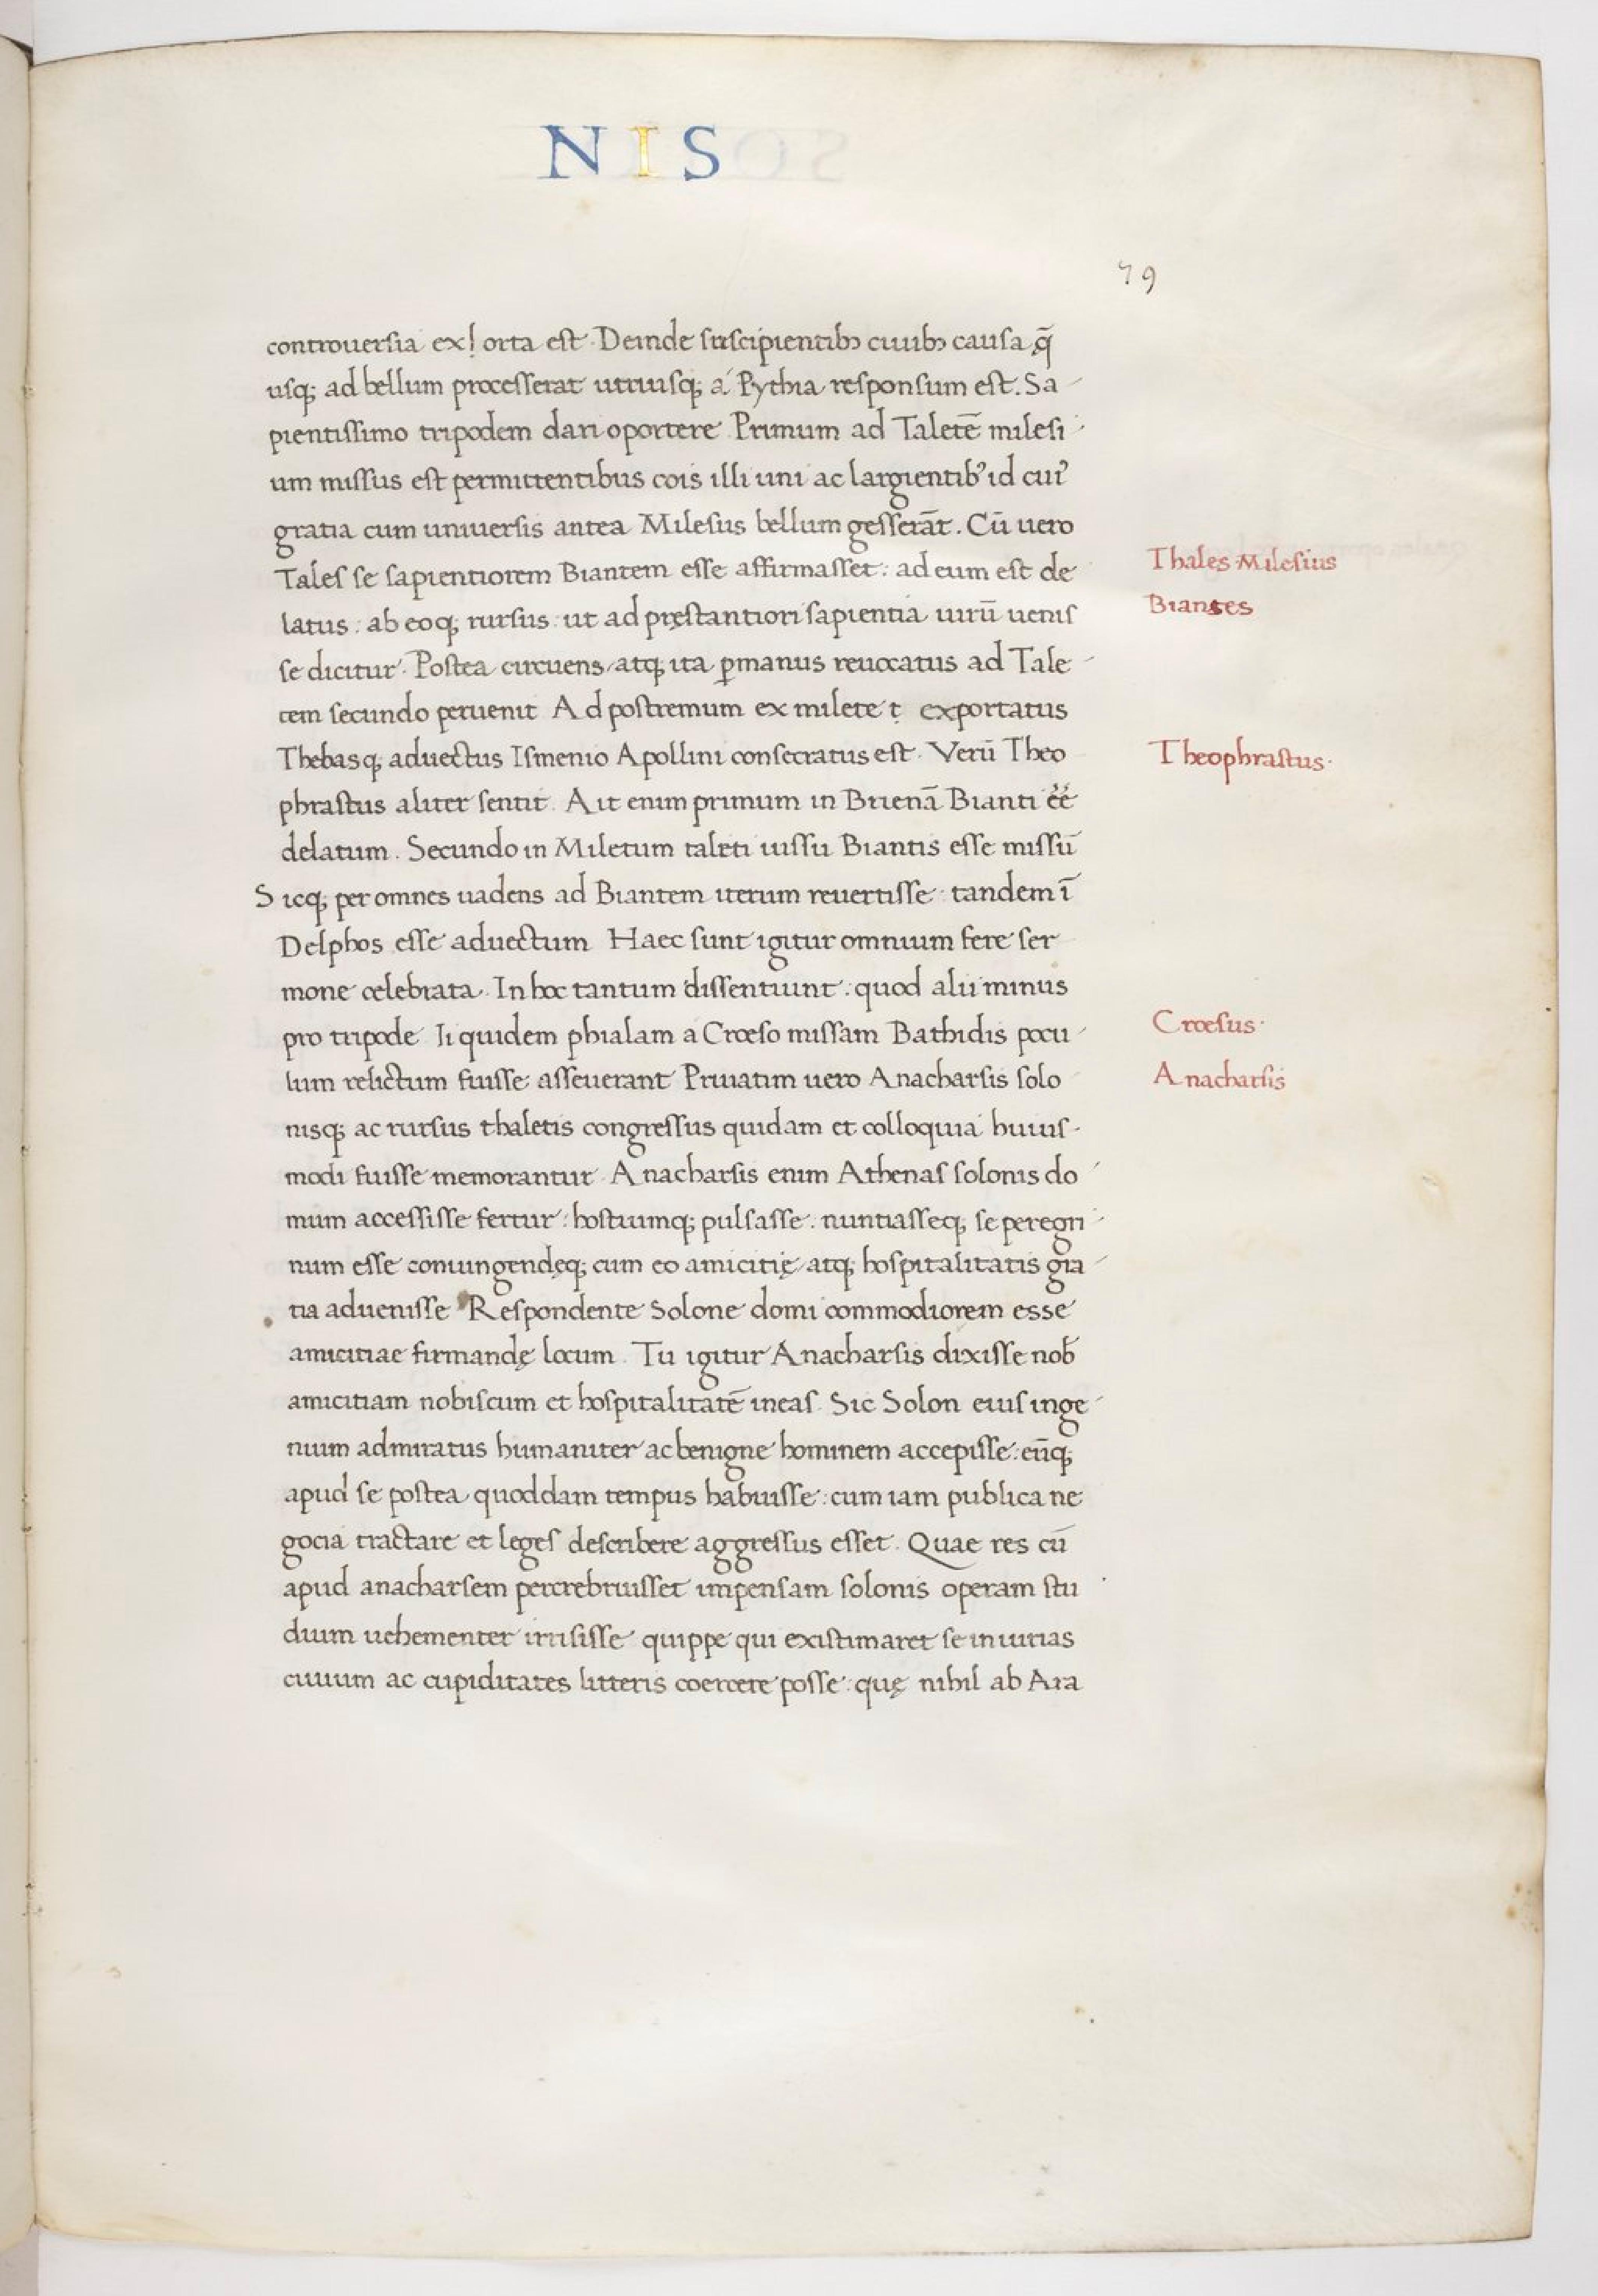 NIS
79
controuersia ex orta est. Deinde suscipientibꝫ ciuibꝫ causa q̄
usqꝫ ad bellum processerat utriusqꝫ a Pythia responsum est. Sa
pientissimo tripodem dari oportere Primum ad Taletē milesi
um missus est permittentibus cois illi uni ac largientibꝰ id cuiꝰ
gratia cum uniuersis antea Milesus bellum gesserāt. Cū uero
Tales se sapientiorem Biantem esse affirmasset: ad eum est de
latus: ab eoqꝫ rursus: ut ad pręstantiori sapientia uirū uenis
se dicitur. Postea circuens atqꝫ ita ꝑ manus reuocatus ad Tale
tem secundo peruenit Ad postremum ex milete t exportatus
Thebasqꝫ aduectus Ismenio Apollini consecratus est. Verū Theo
phrastus aliter sentit. Ait enim primum in Brienā Bianti ēē
delatum. Secundo in Miletum taleti iussu Biantis esse missū
Sicqꝫ per omnes uadens ad Biantem iterum reuertisse: tandem ī
Delphos esse aduectum Haec sunt igitur omnium fere ser
mone celebrata. In hoc tantum dissentiunt: quod alii minus
pro tripode Ii quidem phialam a Croeso missam Bathidis pocu
lum relictum fuisse asseuerant Priuatim uero Anacharsis solo
nisqꝫ ac rursus thaletis congressus quidam et colloquia huius-
modi fuisse memorantur. Anacharsis enim Athenas solonis do
mum accessisse fertur: hostiumqꝫ pulsasse: nuntiasseqꝫ se peregri
num esse coniungendęqꝫ cum eo amicitię atqꝫ hospitalitatis gra
tia aduenisse Respondente Solone domi commodiorem esse
amicitiae firmandę locum. Tu igitur Anacharsis dixisse nob̄
amicitiam nobiscum et hospitalitatē ineas. Sic Solon eius inge
nium admiratus humaniter ac benigne hominem accepisse: eūqꝫ
apud se postea quoddam tempus habuisse: cum iam publica ne
gocia tractare et leges describere aggressus esset. Quae res cū
apud anacharsem percrebruisset impensam solonis operam stu
dium uehementer irrisisse quippe qui existimaret se iniurias
ciuium ac cupiditates litteris coercere posse: quę nihil ab Ara
Thales Milesius
Biantes
Theophrastus.
Croesus.
Anacharsis